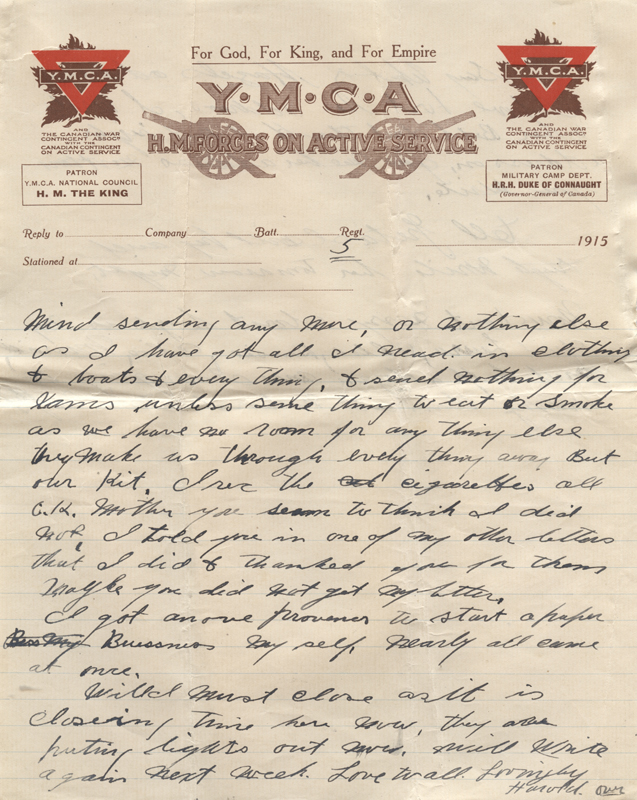 For God, For King, and For Empire
Y·M·C·A
H.M. FORCES ON ACTIVE SERVICE
Y.M.C.A.
AND
THE CANADIAN WAR
CONTINGENT ASSOCN
WITH THE
CANADIAN CONTINGENT
ON ACTIVE SERVICE
PATRON
Y.M.C.A. NATIONAL COUNCIL
H. M. THE KING
Y.M.C.A.
AND
THE CANADIAN WAR
CONTINGENT ASSOCN
WITH THE
CANADIAN CONTINGENT
ON ACTIVE SERVICE
PATRON
MILITARY CAMP DEPT.
H.R.H. DUKE OF CONNAUGHT
(Governor-General of Canada)
Reply to Company Batt. Regt. 1915
5
Stationed at
Mind sending any more, or nothing else
as I have got all I nead. in clothing
& boats & every thing, & send nothing for
Xams unless some thing to eat or smoke
as we have no room for any thing else
they make us through every thing away But
our Kit. I rec the cigarettes all
O.K. Mother you seam to think I did
not, I told you in one of my other letters
that I did & thanked you for them
maybe you did not get my letter.
I got anove to start a paper
Buessness my self, nearly all came
at once.
Will must close as it is
closeing time here now, they are
puting lights out now. will write
again next week. Love to all. Lovingly
Harold. over